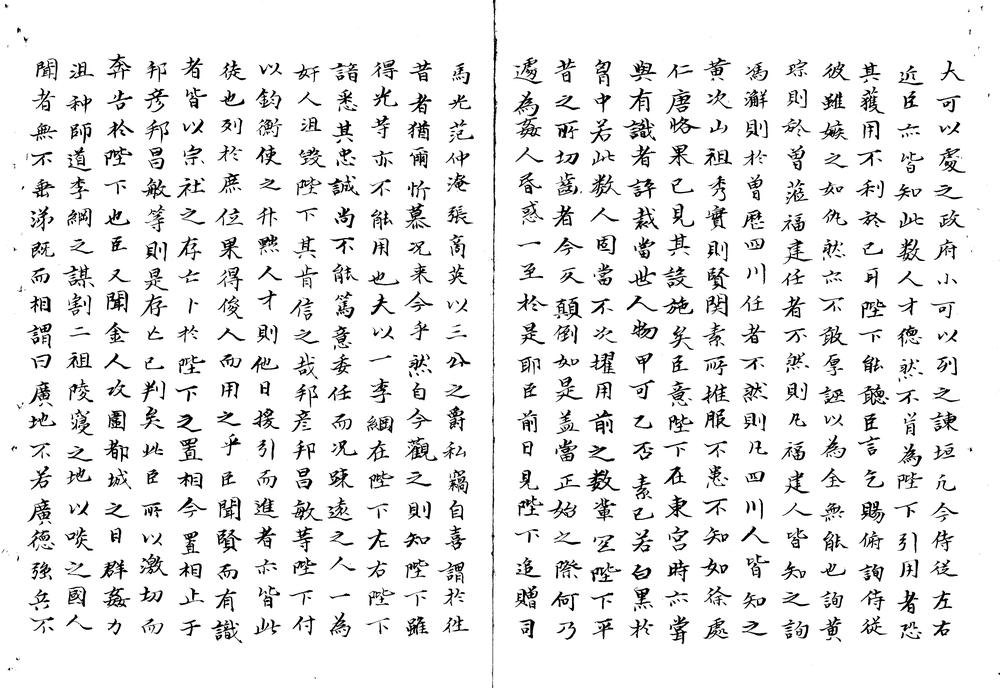 大可以處之政府小可以列之諫垣凢今侍從左右
近臣亦皆知此數人才德然不肯為陛下引用者恐
其獲用不利於已耳陛下能聽臣言乞賜俯詢侍從
彼雖嫉之如仇然亦不敢厚誣以為全無能也詢黄
琮則於曽蒞福建任者不然則凢福建人皆知之詢
馮澥則於曽歷四川任者不然則凢四川人皆知之
黄次山祖秀實則賢関素所推服不患不知如徐處
仁唐恪果已見其設施矣臣意陛下在東宮時亦嘗
與有識者評裁當世人物甲可乙否素已若白黒於
胷中若此数人固當不次擢用前之数輩罡陛下平
昔之所切齒者今反顛倒如是盖當正始之際何乃
遽為姦人昏惑一至於是耶臣前日見陛下追贈司
馬光范仲淹張啇英以三公之爵私竊自喜謂於徃
昔者猶爾忻慕况来今乎然自今觀之則知陛下雖
得光等亦不能用也夫以一李綱在陛下左右陛下
諳悉其忠誠尚不能篤意委任而况疎逺之人一為
奸人沮毁陛下其肯信之哉邦彦邦昌敏等陛下付
以鈞衡使之升黜人才則他日援引而進者亦皆此
徒也列於庶位果得俊人而用之乎臣聞賢而有識
者皆以宗社之存亡卜於陛下之置相今置相止于
邦彦邦昌敏等則是存亡已判矣此臣所以激切而
奔告於陛下也臣又聞金人攻圍都城之日群姦力
沮种師道李綱之謀割二祖陵寝之地以啖之國人
聞者無不垂涕既而相謂曰廣地不若廣德強兵不